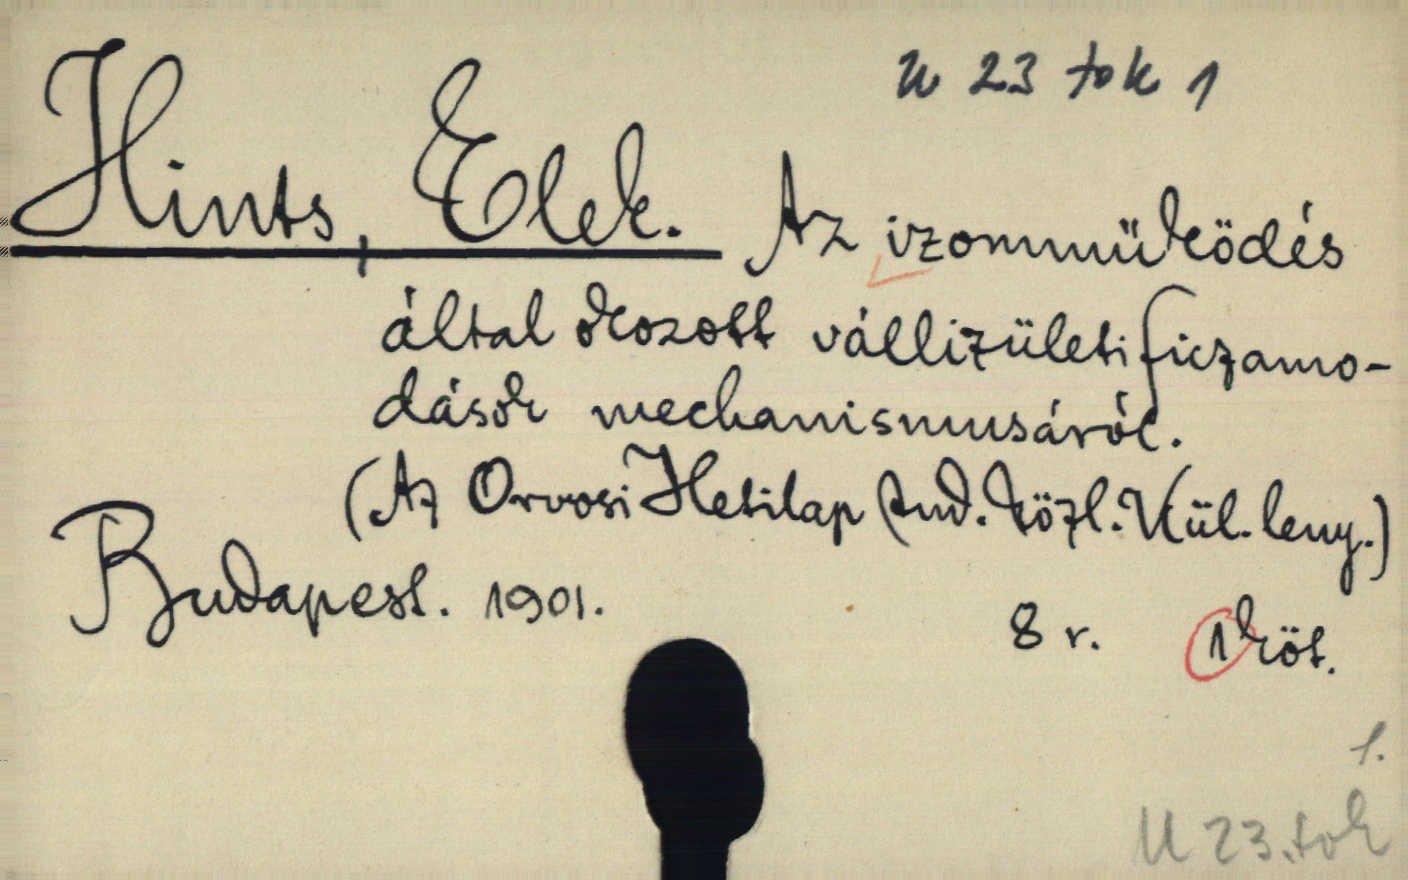 U 23 tok 1
Hints, Elek. Az izommüködés
által okozott vállizületi ficzamo-
dások mechanismusáról.
(Az Orvosi Hetilap tud. közl. Kül. leny.)
Budapest. 1901.
8 r. 1 köt.
1.
U 23. tok